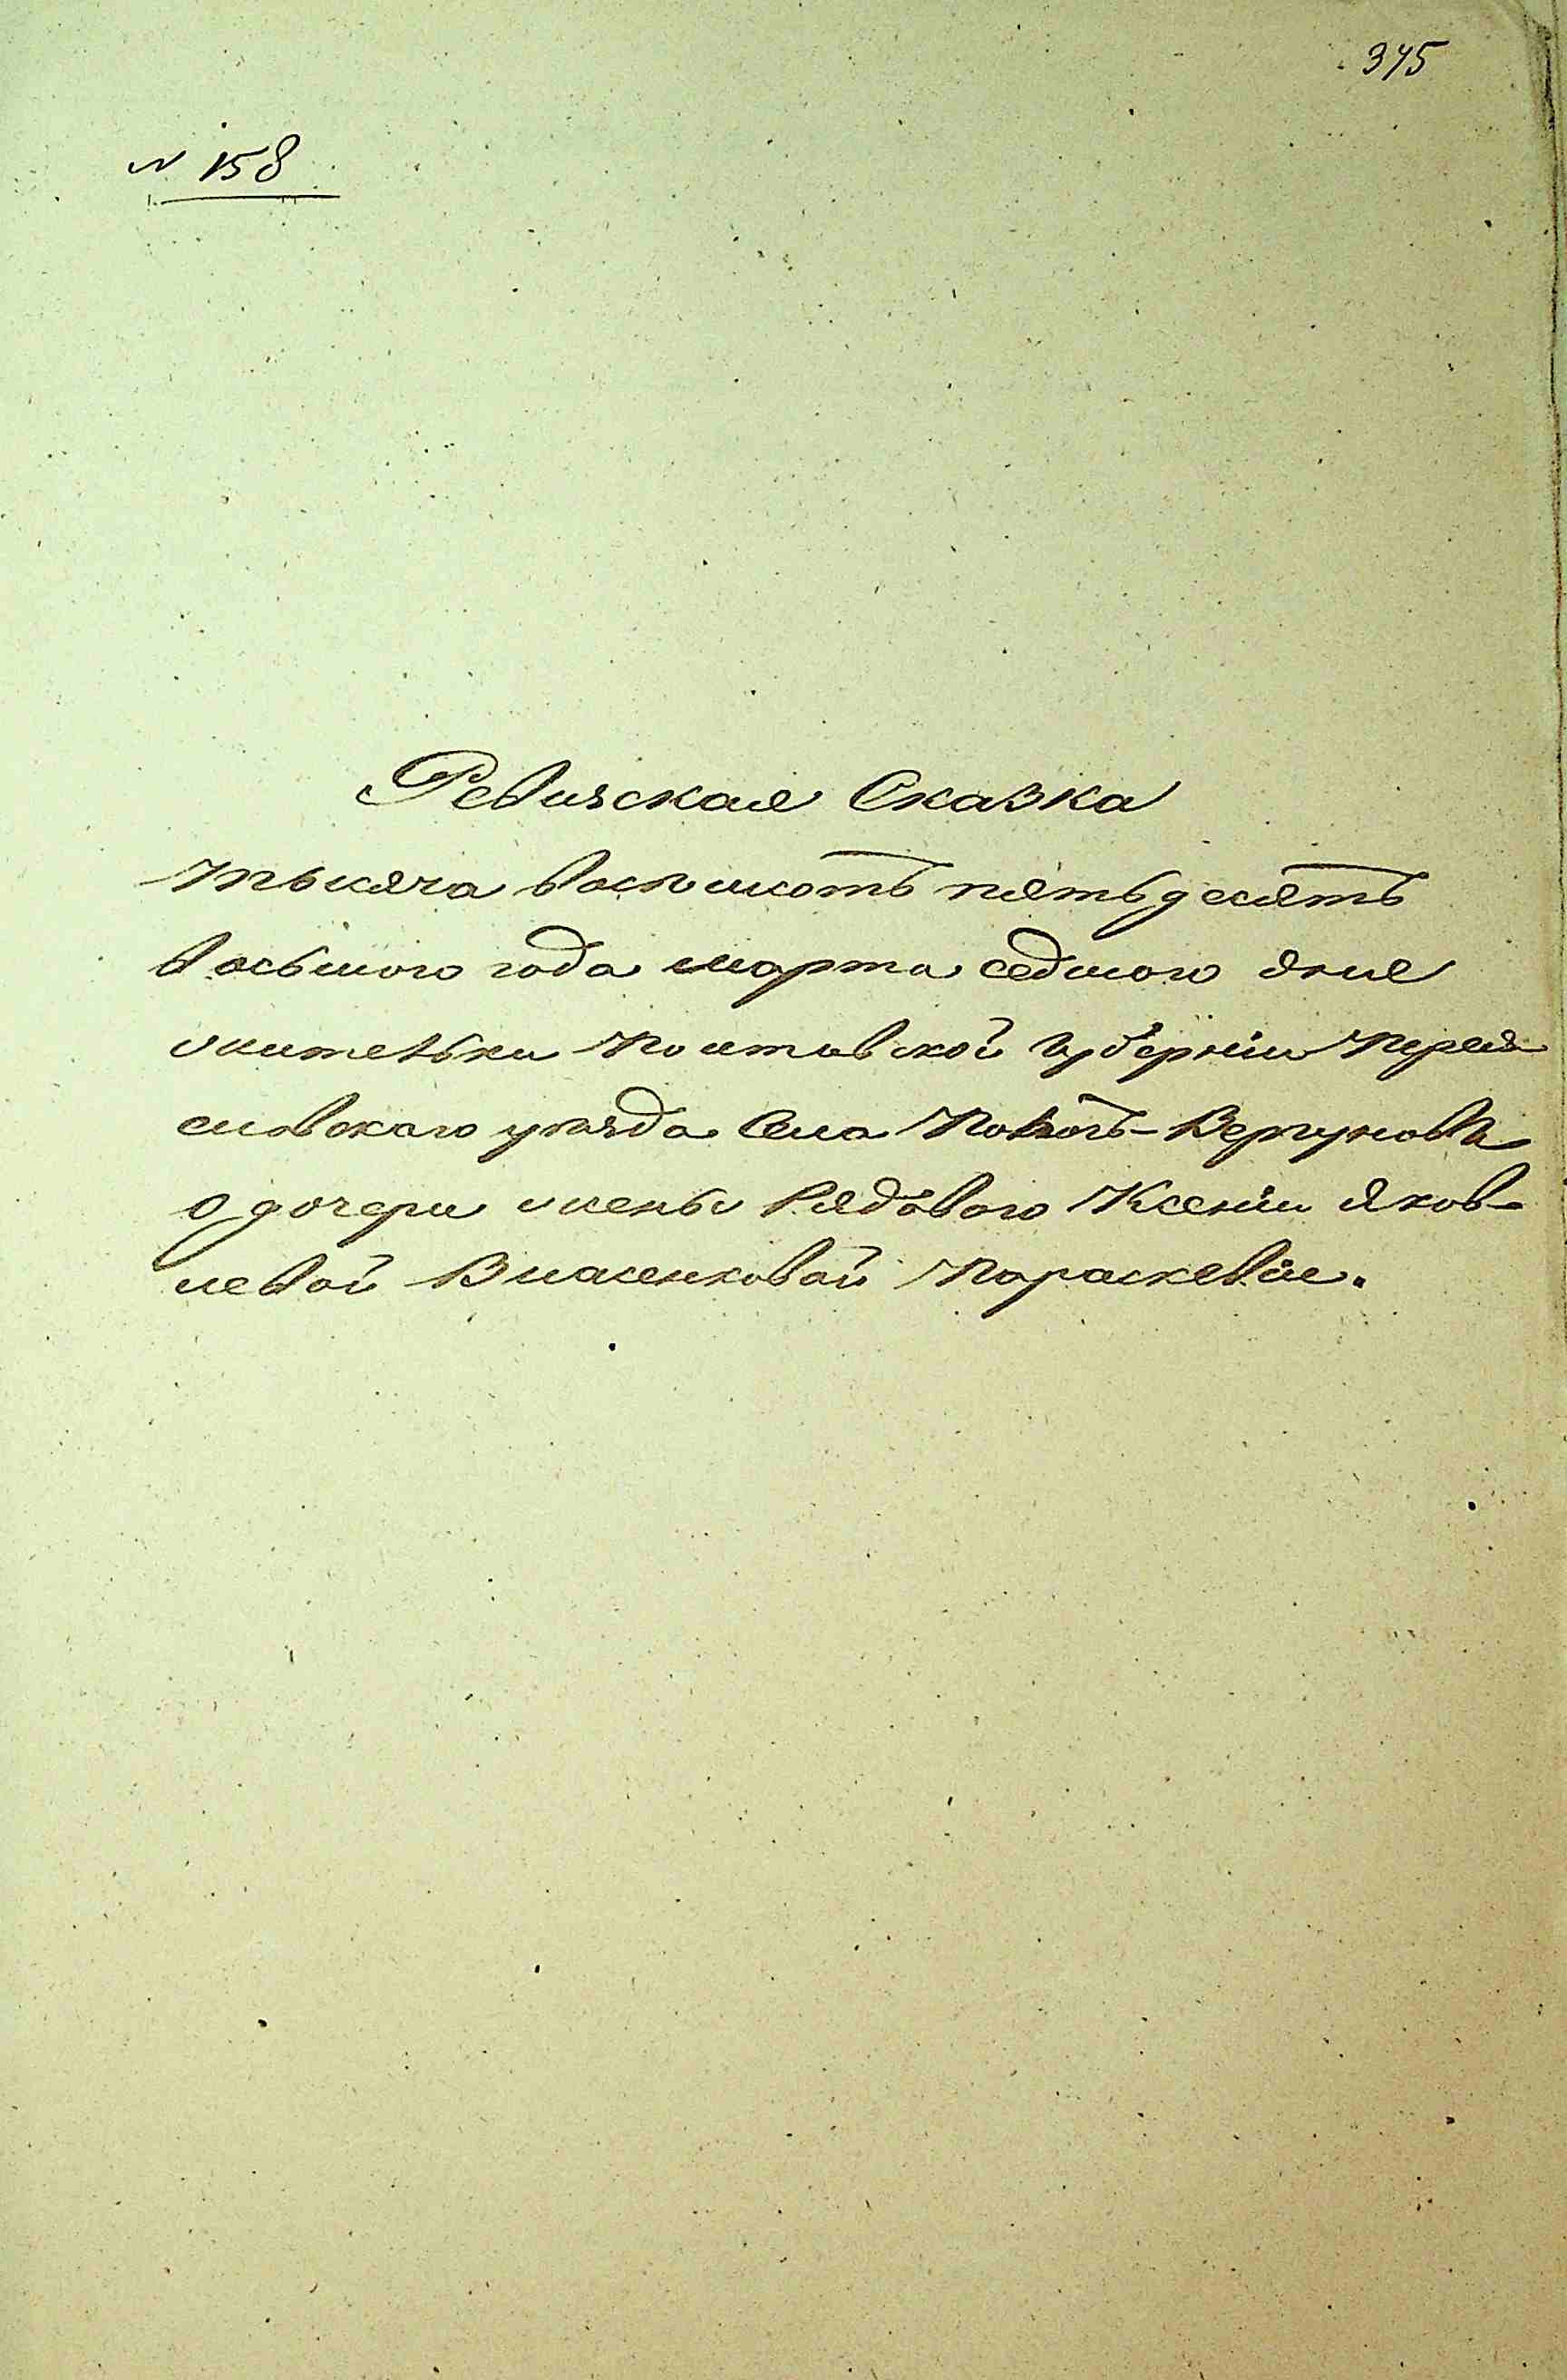 345
N 158
Ревизская Сказка
тысяча восемьсотъ пятьдесятъ
восьмого года марта седмого дня
жительки Полтавской Губерніи Перея-
словскаго уѣзда Села Войтовъ-Вергуновъ
о дочери жены Рядового Ксеніи Яков-
левой Власенковой Параскевіи.